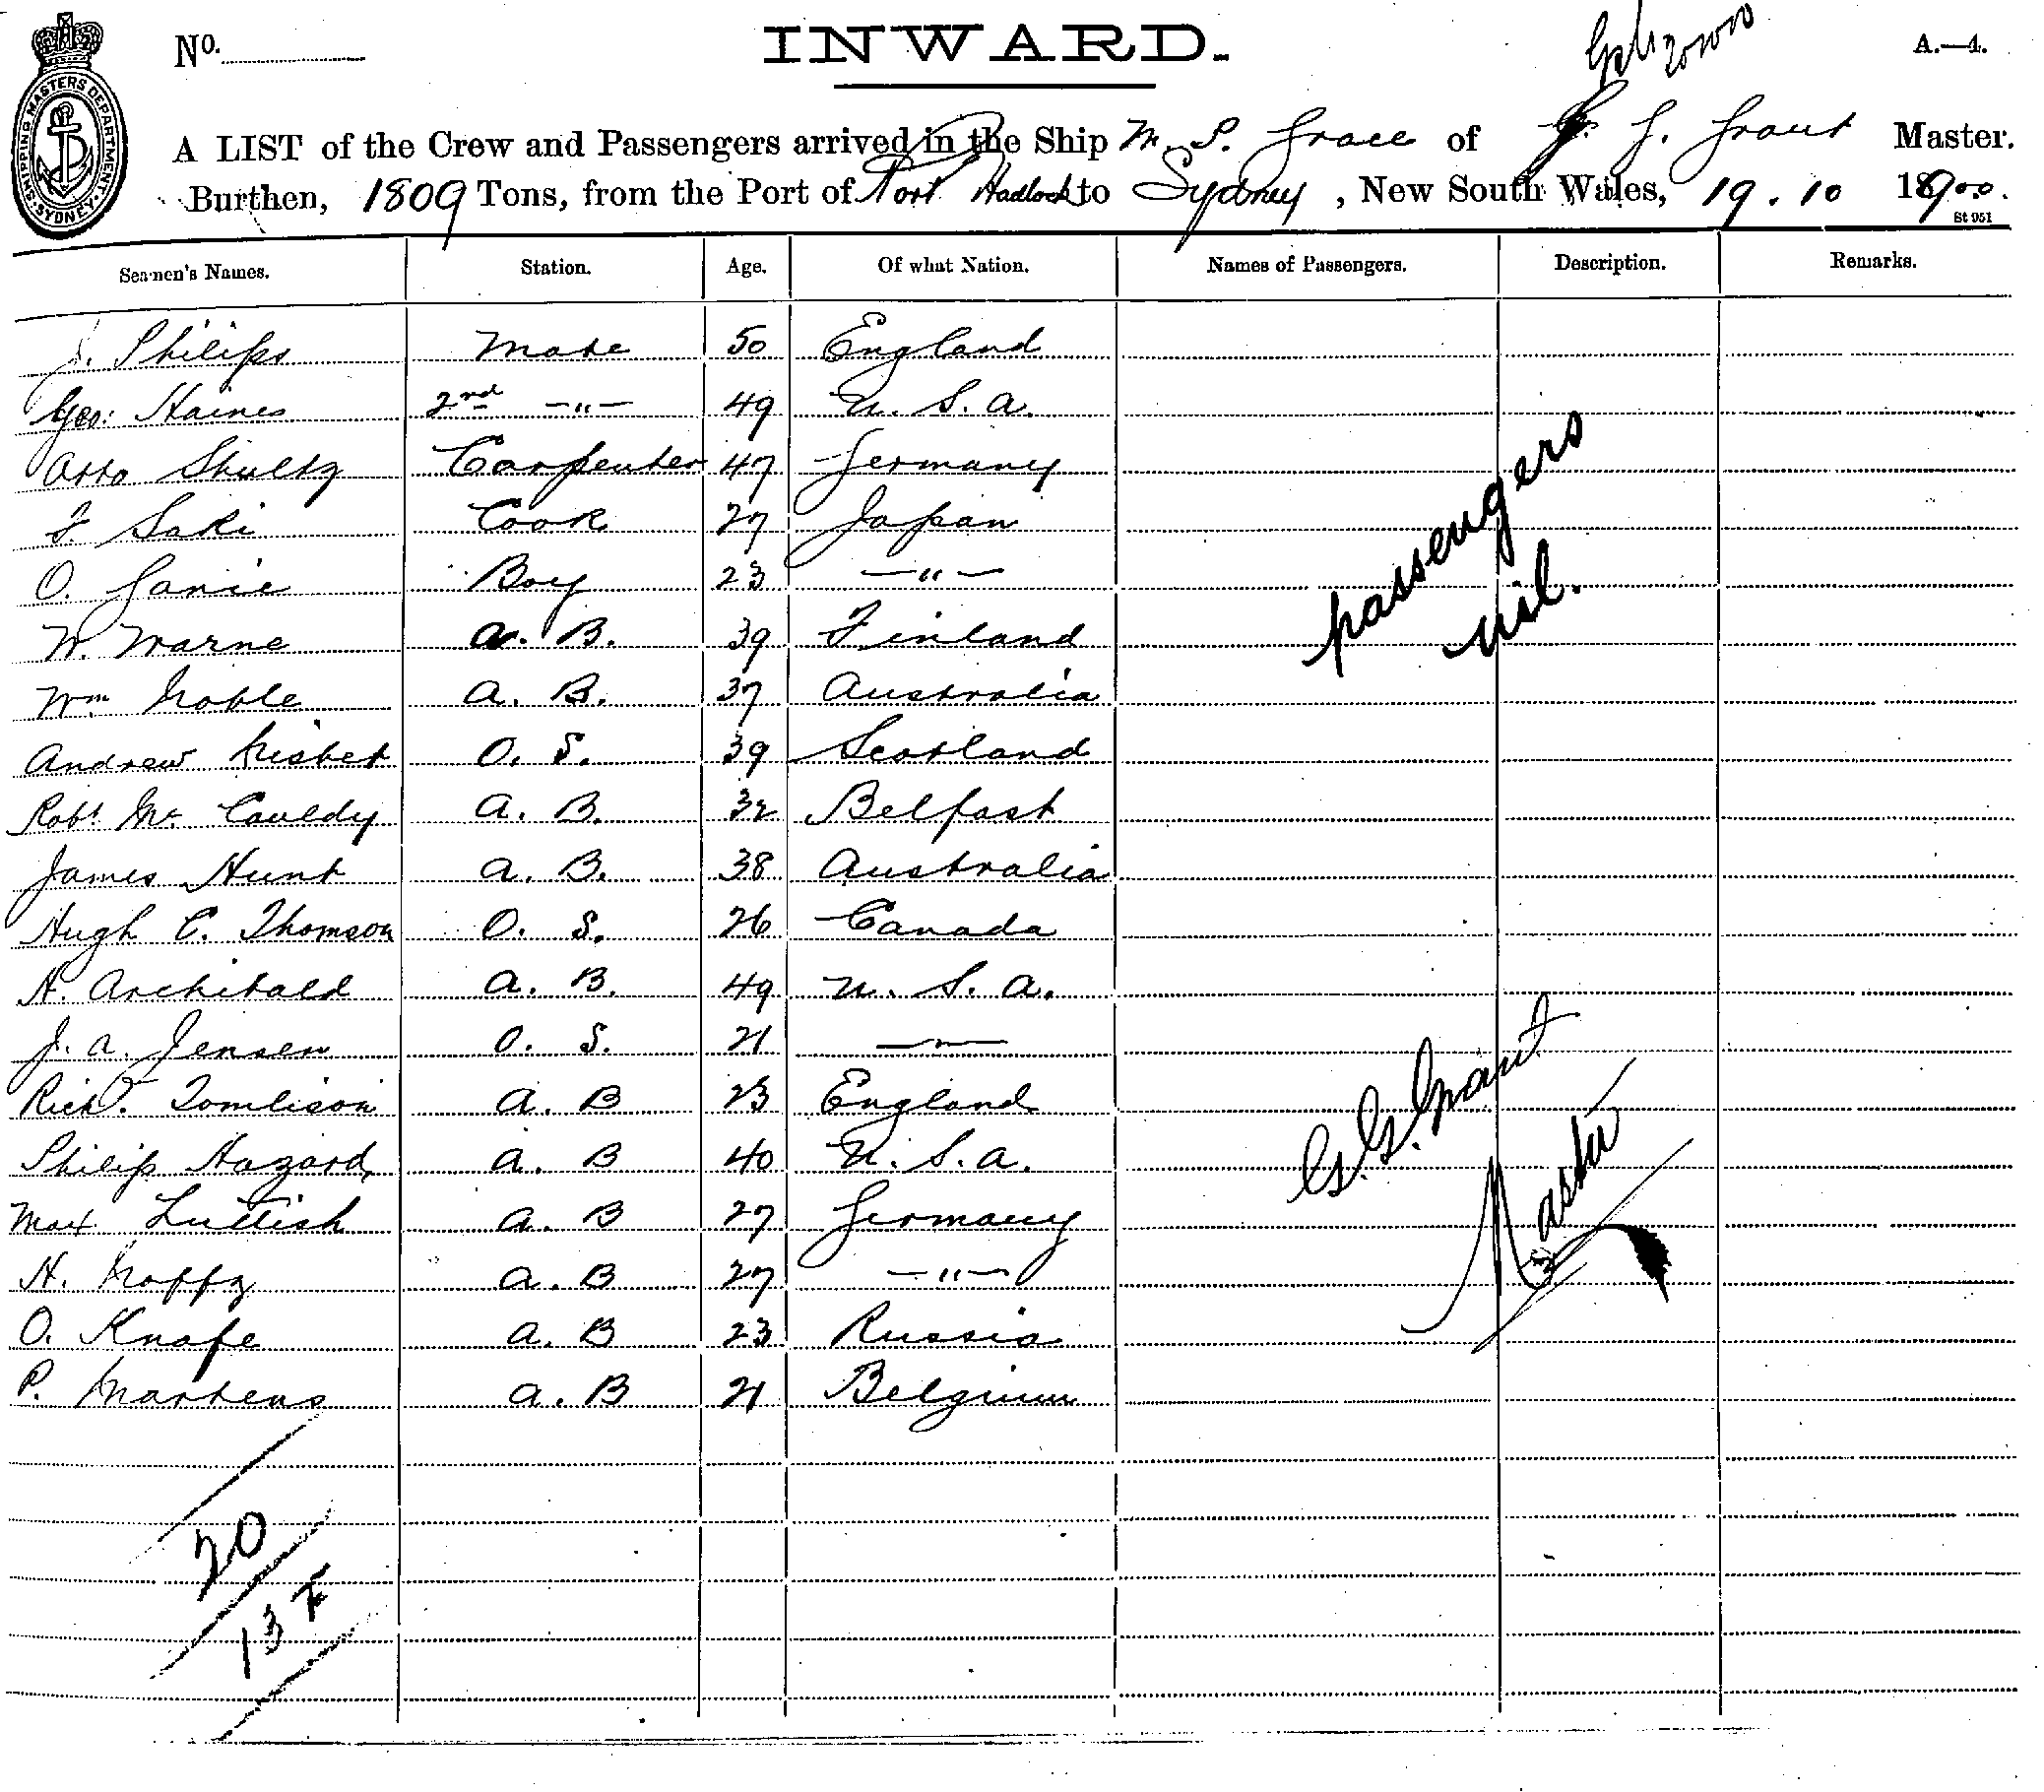 SHIPPING MASTERS DEPARTMENT
SYDNEY
No.
INWARD.
A.—4.
A LIST of the Crew and Passengers arrived in the Ship M. P. Grace of G. G. Grant Master.
Burthen, 1809 Tons, from the Port of Port Hadlock to Sydney, New South Wales, 19.10 1900.
St 951
Seamen's Names. Station. Age. Of what Nation. Names of Passengers. Description. Remarks.
J. Philips Mate 50 England
Geo: Haines 2nd —"— 49 U. S. A.
Otto Shultz Carpenter 47 Germany
F. Saki Cook 27 Japan
O. Boy 23 —"—
W. Warne A. B. 39 Finland
Wm Noble A. B. 37 Australia
Andrew Nisbet O. S. 39 Scotland
Robt Mc. Cauldy A. B. 32 Belfast
James Hunt A. B. 38 Australia
Hugh C. Thomson O. S. 26 Canada
H. Archibald A. B. 49 U. S. A.
J. A. Jensen O. S. 21 —"—
Rich. Tomlison A. B 23 England
Philip Hazard A. B 40 U. S. A.
Max Luttish A. B 27 Germany
H. A. B 27 —"—
O. Knape A. B 23 Russia
P. Martens A. B 21 Belgium
passengers
nil.
G. G. Grant
Master
20
13 F